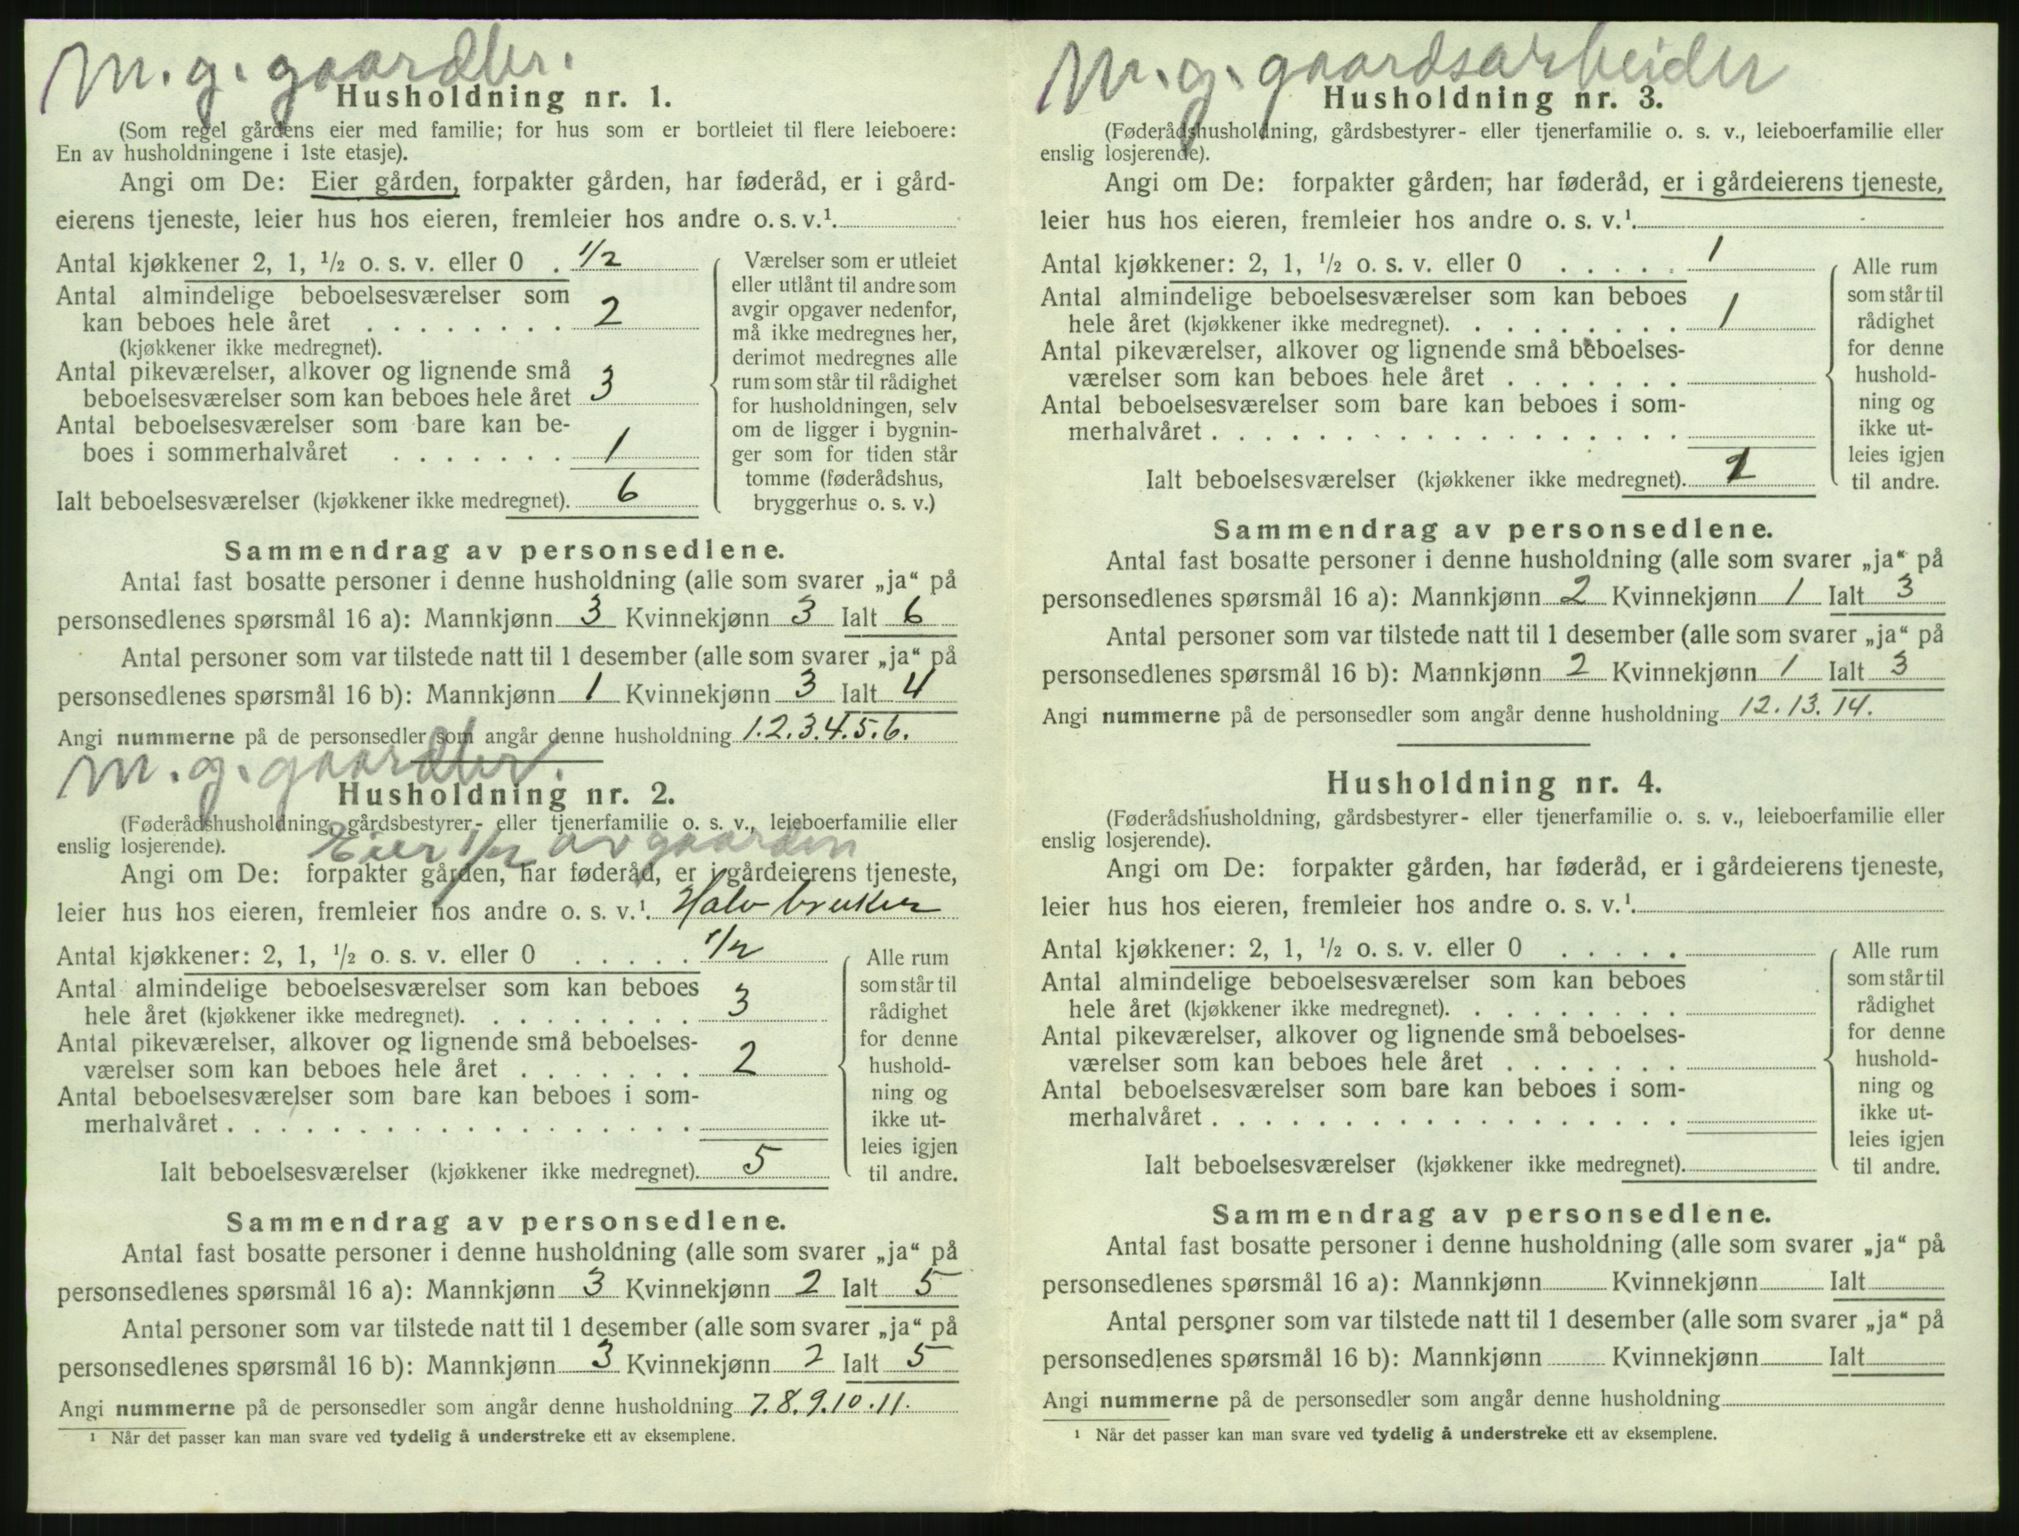 M. g. gaardbr.
Husholdning nr. 1.
(Som regel gårdens eier med familie; for hus som er bortleiet til flere leieboere:
En av husholdningene i 1ste etasje).
Angi om De: Eier gården, forpakter gården, har føderåd, er i gård-
eierens tjeneste, leier hus hos eieren, fremleier hos andre o. s. v.¹.
Antal kjøkkener 2, 1, ½ o. s. v. eller 0 . 1/2
Antal almindelige beboelsesværelser som
kan beboes hele året . . . . . . . . 2
(kjøkkener ikke medregnet).
Antal pikeværelser, alkover og lignende små
beboelsesværelser som kan beboes hele året 3
Antal beboelsesværelser som bare kan be-
boes i sommerhalvåret . . . . . . . 1
Ialt beboelsesværelser (kjøkkener ikke medregnet). 6
Værelser som er utleiet
eller utlånt til andre som
avgir opgaver nedenfor,
må ikke medregnes her,
derimot medregnes alle
rum som står til rådighet
for husholdningen, selv
om de ligger i bygnin-
ger som for tiden står
tomme (føderådshus,
bryggerhus o. s. v.)
Sammendrag av personsedlene.
Antal fast bosatte personer i denne husholdning (alle som svarer „ja“ på
personsedlenes spørsmål 16 a): Mannkjønn 3 Kvinnekjønn 3 Ialt 6
Antal personer som var tilstede natt til 1 desember (alle som svarer „ja“ på
personsedlenes spørsmål 16 b): Mannkjønn 1 Kvinnekjønn 3 Ialt 4
Angi nummerne på de personsedler som angår denne husholdning 1.2.3.4.5.6.
M. g. gaardbr.
Husholdning nr. 2.
(Føderådshusholdning, gårdsbestyrer- eller tjenerfamilie o. s. v., leieboerfamilie eller
enslig losjerende).
Eier 1/2 av gaarden
Angi om De: forpakter gården, har føderåd, er i gårdeierens tjeneste,
leier hus hos eieren, fremleier hos andre o. s. v.¹. Halv bruker
Antal kjøkkener: 2, 1, ½ o. s. v. eller 0 . . . . . 1/2
Antal almindelige beboelsesværelser som kan beboes
hele året (kjøkkener ikke medregnet). . . . . . . . . 3
Antal pikeværelser, alkover og lignende små beboelses-
værelser som kan beboes hele året . . . . . . . 2
Antal beboelsesværelser som bare kan beboes i som-
merhalvåret . . . . . . . . . . . . . . . . . .
Ialt beboelsesværelser (kjøkkener ikke medregnet). 5
Alle rum
som står til
rådighet
for denne
hushold-
ning og
ikke ut-
leies igjen
til andre.
Sammendrag av personsedlene.
Antal fast bosatte personer i denne husholdning (alle som svarer „ja“ på
personsedlenes spørsmål 16 a): Mannkjønn 3 Kvinnekjønn 2 Ialt 5
Antal personer som var tilstede natt til 1 desember (alle som svarer „ja“ på
personsedlenes spørsmål 16 b): Mannkjønn 3 Kvinnekjønn 2 Ialt 5
Angi nummerne på de personsedler som angår denne husholdning 7.8.9.10.11.
¹ Når det passer kan man svare ved tydelig å understreke ett av eksemplene.
M. g. gaardsarbeider
Husholdning nr. 3.
(Føderådshusholdning, gårdsbestyrer- eller tjenerfamilie o. s. v., leieboerfamilie eller
enslig losjerende).
Angi om De: forpakter gården, har føderåd, er i gårdeierens tjeneste,
leier hus hos eieren, fremleier hos andre o. s. v.¹.
Antal kjøkkener: 2, 1, ½ o. s. v. eller 0 . . . . . 1
Antal almindelige beboelsesværelser som kan beboes
hele året (kjøkkener ikke medregnet). . . . . . . . . 1
Antal pikeværelser, alkover og lignende små beboelses-
værelser som kan beboes hele året . . . . . . .
Antal beboelsesværelser som bare kan beboes i som-
merhalvåret . . . . . . . . . . . . . . . . . .
Ialt beboelsesværelser (kjøkkener ikke medregnet).
Alle rum
som står til
rådighet
for denne
hushold-
ning og
ikke ut-
leies igjen
til andre.
Sammendrag av personsedlene.
Antal fast bosatte personer i denne husholdning (alle som svarer „ja“ på
personsedlenes spørsmål 16 a): Mannkjønn 2 Kvinnekjønn 1 Ialt 3
Antal personer som var tilstede natt til 1 desember (alle som svarer „ja“ på
personsedlenes spørsmål 16 b): Mannkjønn 2 Kvinnekjønn 1 Ialt 3
Angi nummerne på de personsedler som angår denne husholdning 12.13.14.
Husholdning nr. 4.
(Føderådshusholdning, gårdsbestyrer- eller tjenerfamilie o. s. v., leieboerfamilie eller
enslig losjerende).
Angi om De: forpakter gården, har føderåd, er i gårdeierens tjeneste,
leier hus hos eieren, fremleier hos andre o. s. v.¹.
Antal kjøkkener: 2, 1, ½ o. s. v. eller 0 . . . . .
Antal almindelige beboelsesværelser som kan beboes
hele året (kjøkkener ikke medregnet). . . . . . . . .
Antal pikeværelser, alkover og lignende små beboelses-
værelser som kan beboes hele året . . . . . . .
Antal beboelsesværelser som bare kan beboes i som-
merhalvåret . . . . . . . . . . . . . . . . . .
Ialt beboelsesværelser (kjøkkener ikke medregnet).
Alle rum
som står til
rådighet
for denne
hushold-
ning og
ikke ut-
leies igjen
til andre.
Sammendrag av personsedlene.
Antal fast bosatte personer i denne husholdning (alle som svarer „ja“ på
personsedlenes spørsmål 16 a): Mannkjønn Kvinnekjønn Ialt
Antal personer som var tilstede natt til 1 desember (alle som svarer „ja“ på
personsedlenes spørsmål 16 b): Mannkjønn Kvinnekjønn Ialt
Angi nummerne på de personsedler som angår denne husholdning
¹ Når det passer kan man svare ved tydelig å understreke ett av eksemplene.